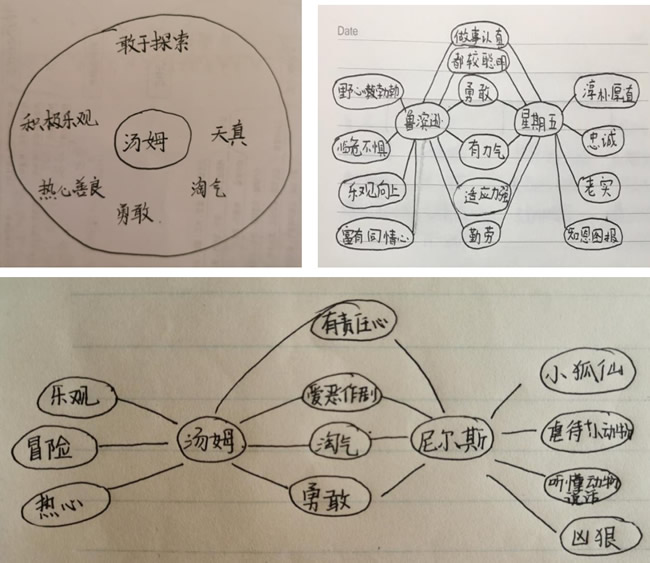 敢于探索
积极乐观
汤姆
天真
热心善良
淘气
勇敢
Date
做事认真
都较聪明
野心鼓勃勃
勇敢
淳朴厚直
鲁滨逊
星期五
临危不惧
有力气
忠诚
乐观向上
适应力强
老实
富有同情心
勤劳
知恩图报
有责任心
乐观
爱恶作剧
小狐仙
冒险
汤姆
淘气
尼尔斯
虐待小动物
热心
勇敢
听懂动物
说话
凶狠